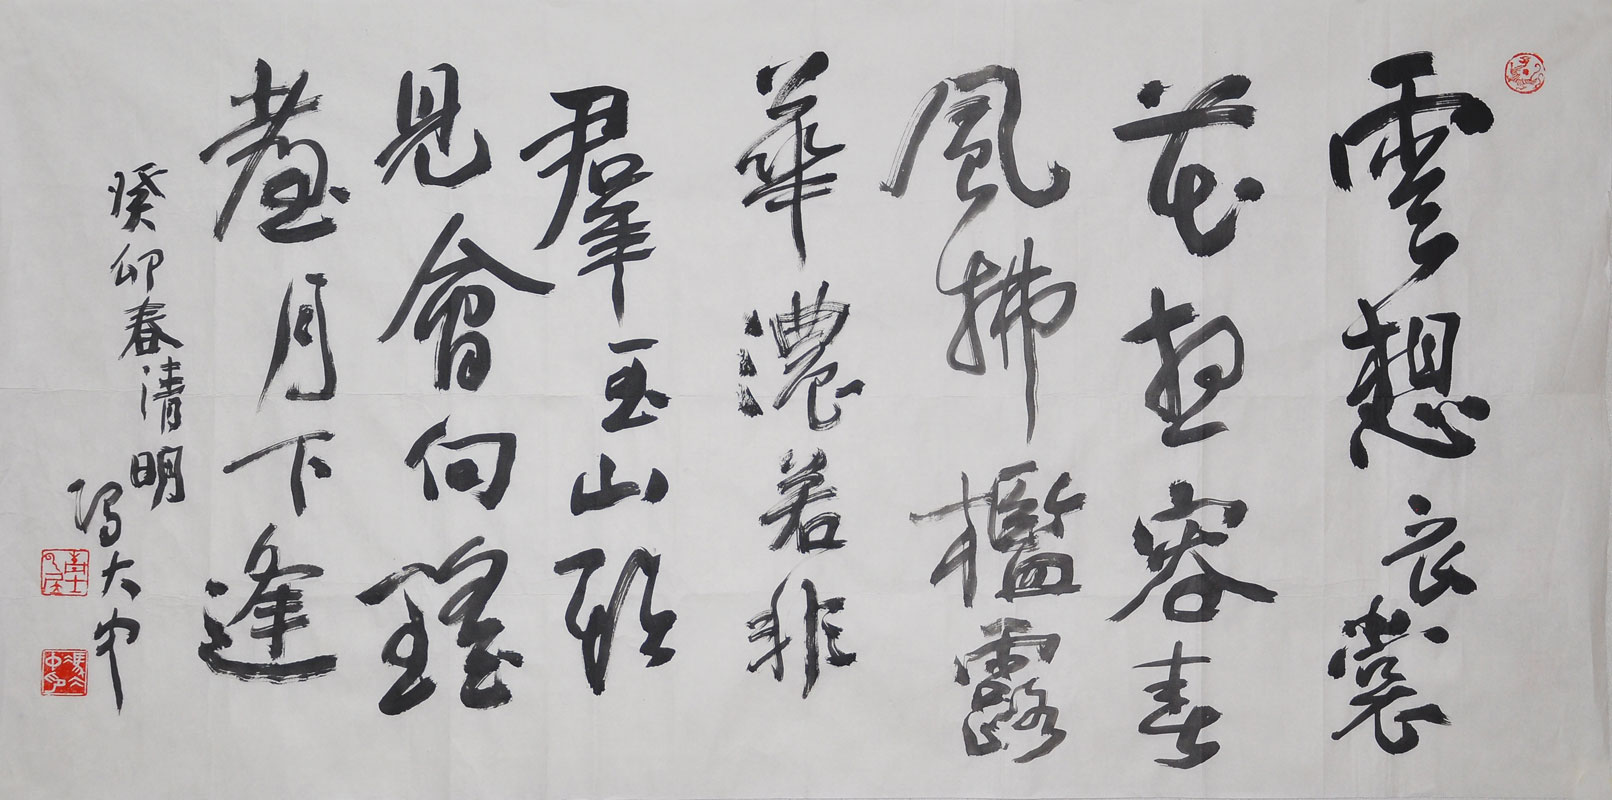 雲想衣裳
花想容春
風拂檻露
華濃若非
羣玉山頭
見會向瑤
臺月下逢
癸卯春清明
馮大中